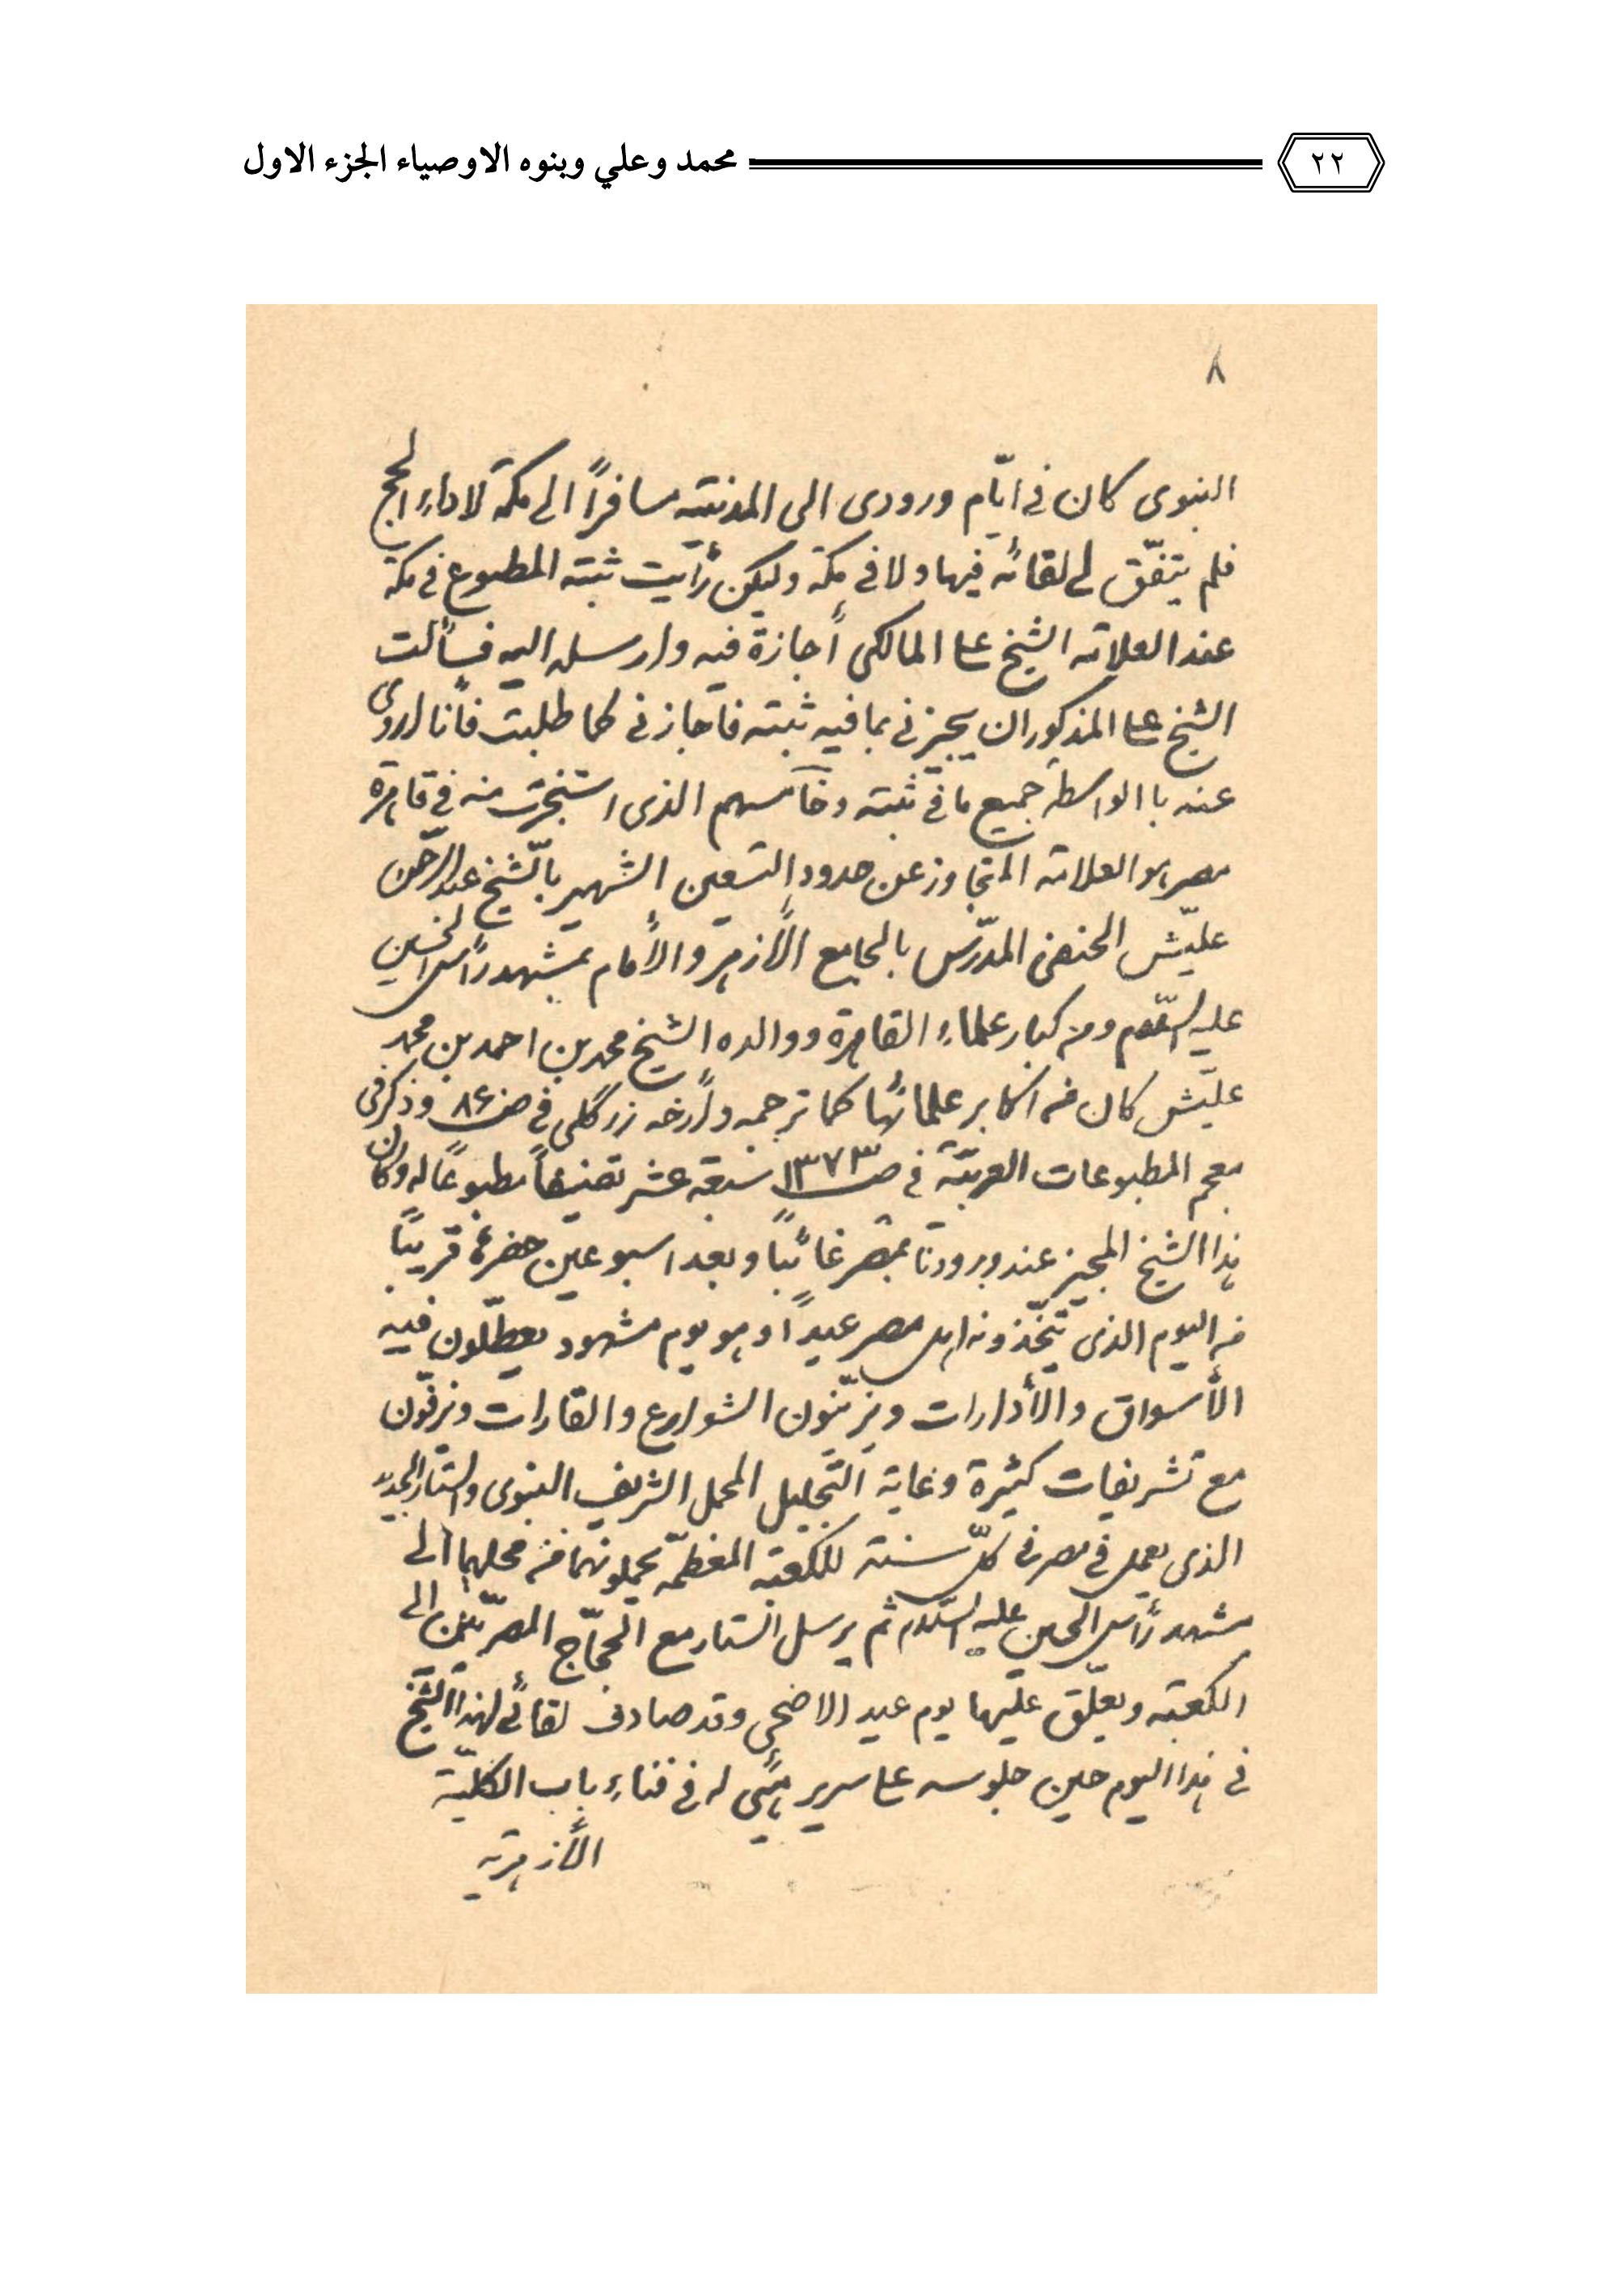 ٢٢ محمد وعلي وبنوه الاوصياء الجزء الاول
٨
النبوى كان فى ايّام ورودى الى المدينة مسافراً الى مكة لاداء الحج
فلم يتفّق لى لقائه فيها ولا فى مكة وليكن رأيت ثبته المطبوع فى مكة
عند العلامة الشيخ على المالكى أجازة فيه وارسله اليه فسألت
الشيخ على المذكور ان يجيزنى بما فيه ثبته فأجازنى كما طلبت فأنا اروى
عنه باالواسطة جميع ما فى ثبته وخامسهم الذى استجزت منه فى قاهرة
مصر هو العلامة المتجاوز عن حدود التسعين الشهير بالشّيخ عبد الرحمن
عليّش الحنفى المدّرس بالجامع الأزهر والأمام بمشهد رأس الحسين
عليه السّلام ومن كبار علماء القاهرة ووالده الشيخ محمد بن احمد بن محمد
عليّش كان من اكابر علمائها كما ترجمه وأرخه زرگلى فى صف ٨۶ وذكر فى
معجم المطبوعات العربيّة فى صـ ١٣٧٣ سبعة عشر تصنيفاً مطبوعاً له وكان
هذا الشيخ المجيز عند ورودنا بمصر غائباً وبعد اسبوعين حضر قريباً
من اليوم الذى يتخّذونه اهل مصر عيداً وهو يوم مشهود يعطّلون فيه
الأسواق والأدارات ويزيّنون الشوارع والقارات ويزفّون
مع تشريفات كثيرة وغاية التجليل المحمل الشريف النبوى والستار الجديد
الذى يعمل فى مصر فى كلّ سنة للكعبة المعظمّة يحملونهما من محلهما الى
مشهد رأس الحسين عليه السّلام ثم يرسل الستار مع الحجّاج المصريّين الى
الكعبة ويعلّق عليها يوم عيد الاضحى وقد صادف لقائى لهذا الشيخ
فى هذا اليوم حين جلوسه على سرير هيّئ له فى فناء باب الكليّة
الأزهرية